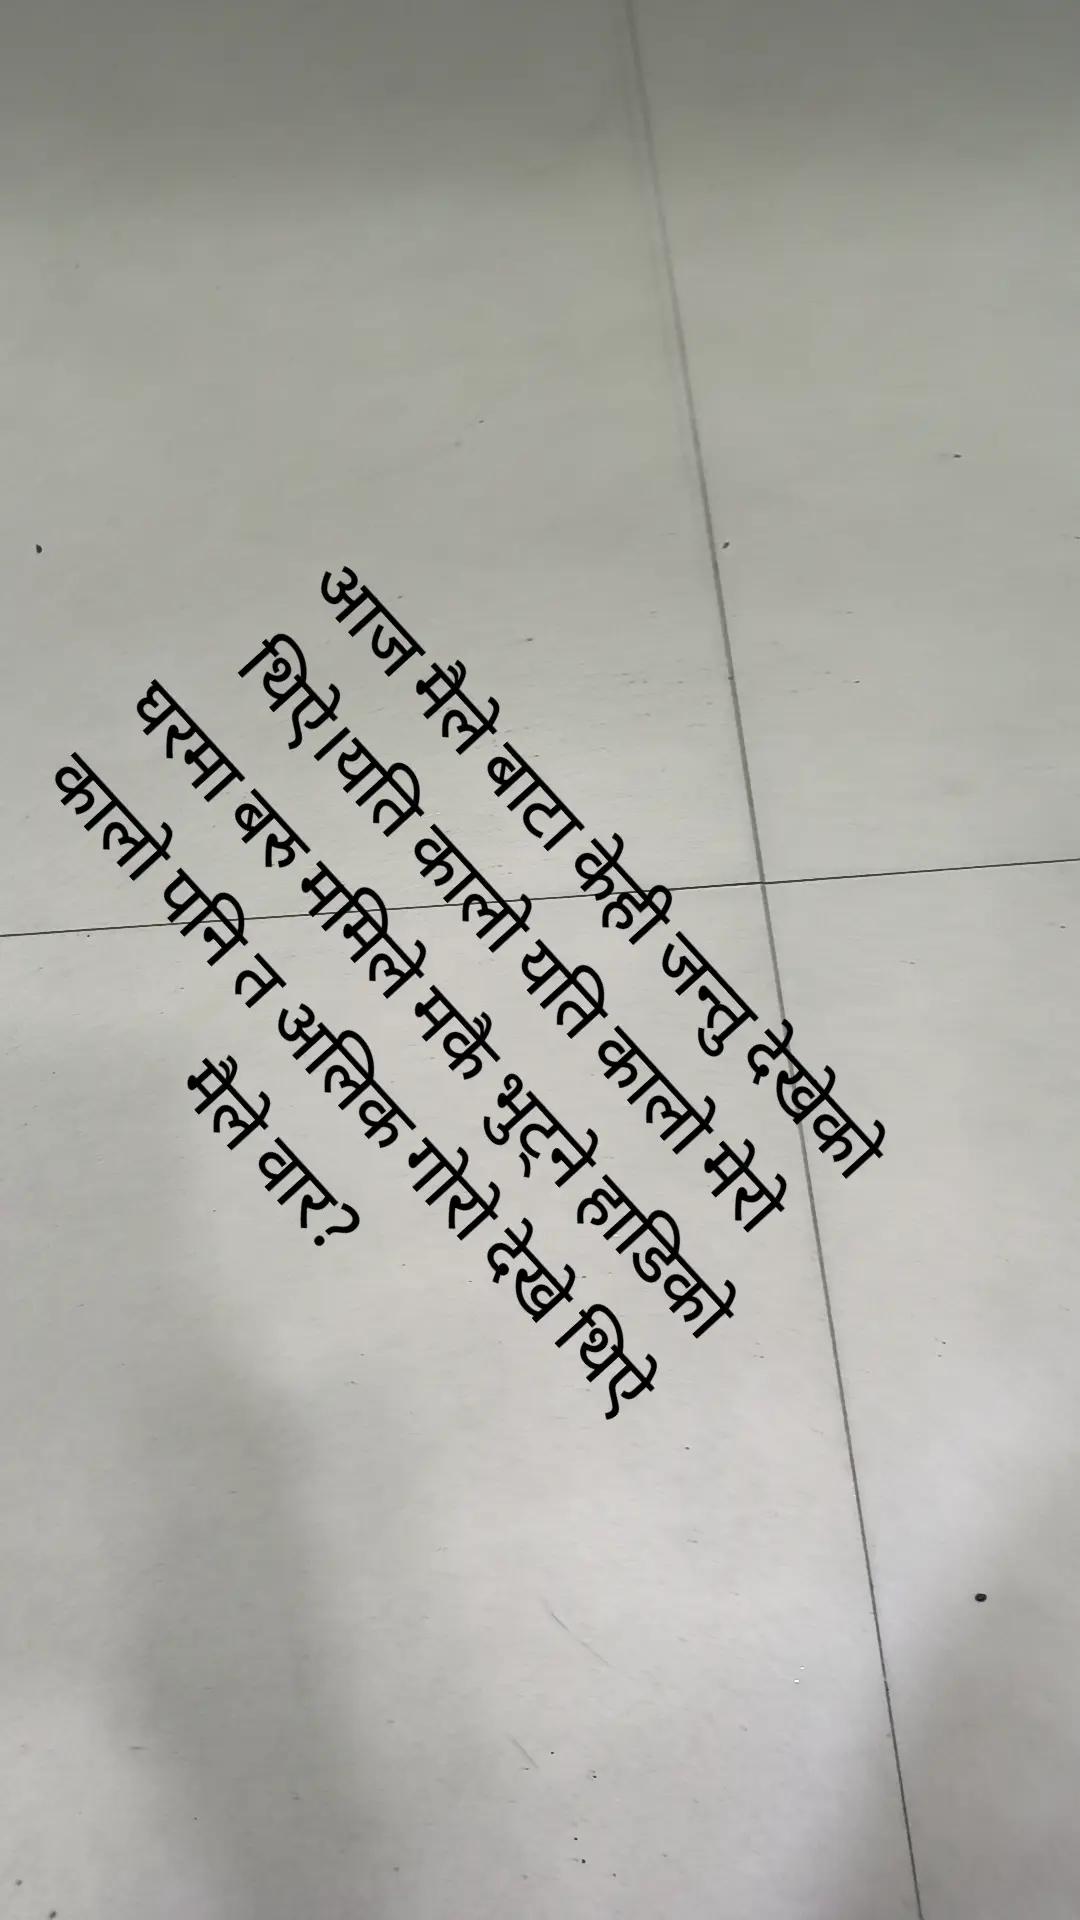 आज मैले बाटा केही जन्तु देखेको
थिऐ।यति कालो यति कालो मेरो
घरमा बरु ममिले मकै भुट्ने हाडिको
कालो पनि त अलिक गोरो देखे थिऐ
मैले वार?